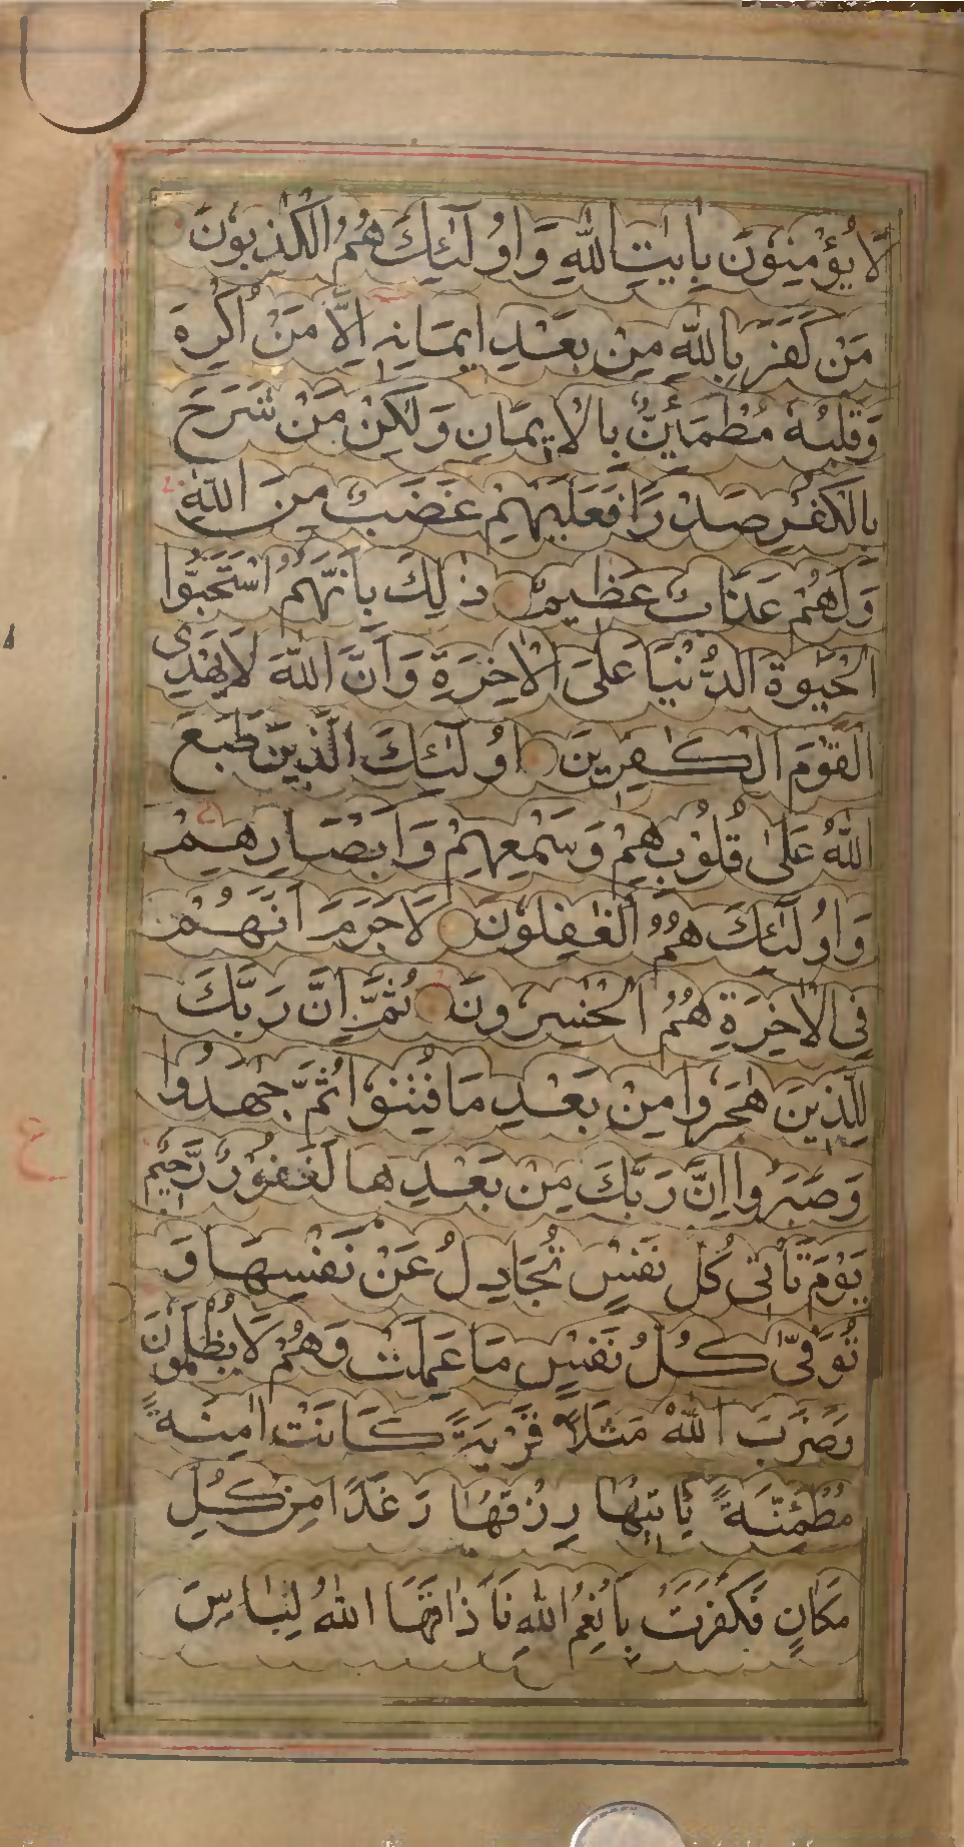 لَا يُؤْمِنُوْنَ بِاٰيٰتِ اللّٰهِ وَاُولٰٓئِكَ هُمُ الْكٰذِبُوْنَ
مَنْ كَفَرَ بِاللّٰهِ مِنْ بَعْدِ اِيْمَانِهٖ اِلَّا مَنْ اُكْرِهَ
وَقَلْبُهٗ مُطْمَئِنٌّ بِالْاِيْمَانِ وَلٰكِنْ مَنْ شَرَحَ
بِالْكُفْرِ صَدْرًا فَعَلَيْهِمْ غَضَبٌ مِنَ اللّٰهِ
وَلَهُمْ عَذَابٌ عَظِيْمٌ ذٰلِكَ بِاَنَّهُمُ اسْتَحَبُّوا
الْحَيٰوةَ الدُّنْيَا عَلَى الْاٰخِرَةِ وَاَنَّ اللّٰهَ لَا يَهْدِى
الْقَوْمَ الْكٰفِرِيْنَ اُولٰٓئِكَ الَّذِيْنَ طَبَعَ
اللّٰهُ عَلٰى قُلُوْبِهِمْ وَسَمْعِهِمْ وَاَبْصَارِهِمْ
وَاُولٰٓئِكَ هُمُ الْغٰفِلُوْنَ لَا جَرَمَ اَنَّهُمْ
فِى الْاٰخِرَةِ هُمُ الْخٰسِرُوْنَ ثُمَّ اِنَّ رَبَّكَ
لِلَّذِيْنَ هَاجَرُوْا مِنْ بَعْدِ مَا فُتِنُوْا ثُمَّ جٰهَدُوْا
وَصَبَرُوْا اِنَّ رَبَّكَ مِنْ بَعْدِهَا لَغَفُوْرٌ رَّحِيْمٌ
يَوْمَ تَاْتِى كُلُّ نَفْسٍ تُجَادِلُ عَنْ نَفْسِهَا وَ
تُوَفّٰى كُلُّ نَفْسٍ مَا عَمِلَتْ وَهُمْ لَا يُظْلَمُوْنَ
وَضَرَبَ اللّٰهُ مَثَلًا قَرْيَةً كَانَتْ اٰمِنَةً
مُطْمَئِنَّةً يَاْتِيْهَا رِزْقُهَا رَغَدًا مِنْ كُلِّ
مَكَانٍ فَكَفَرَتْ بِاَنْعُمِ اللّٰهِ فَاَذَاقَهَا اللّٰهُ لِبَاسَ
ع